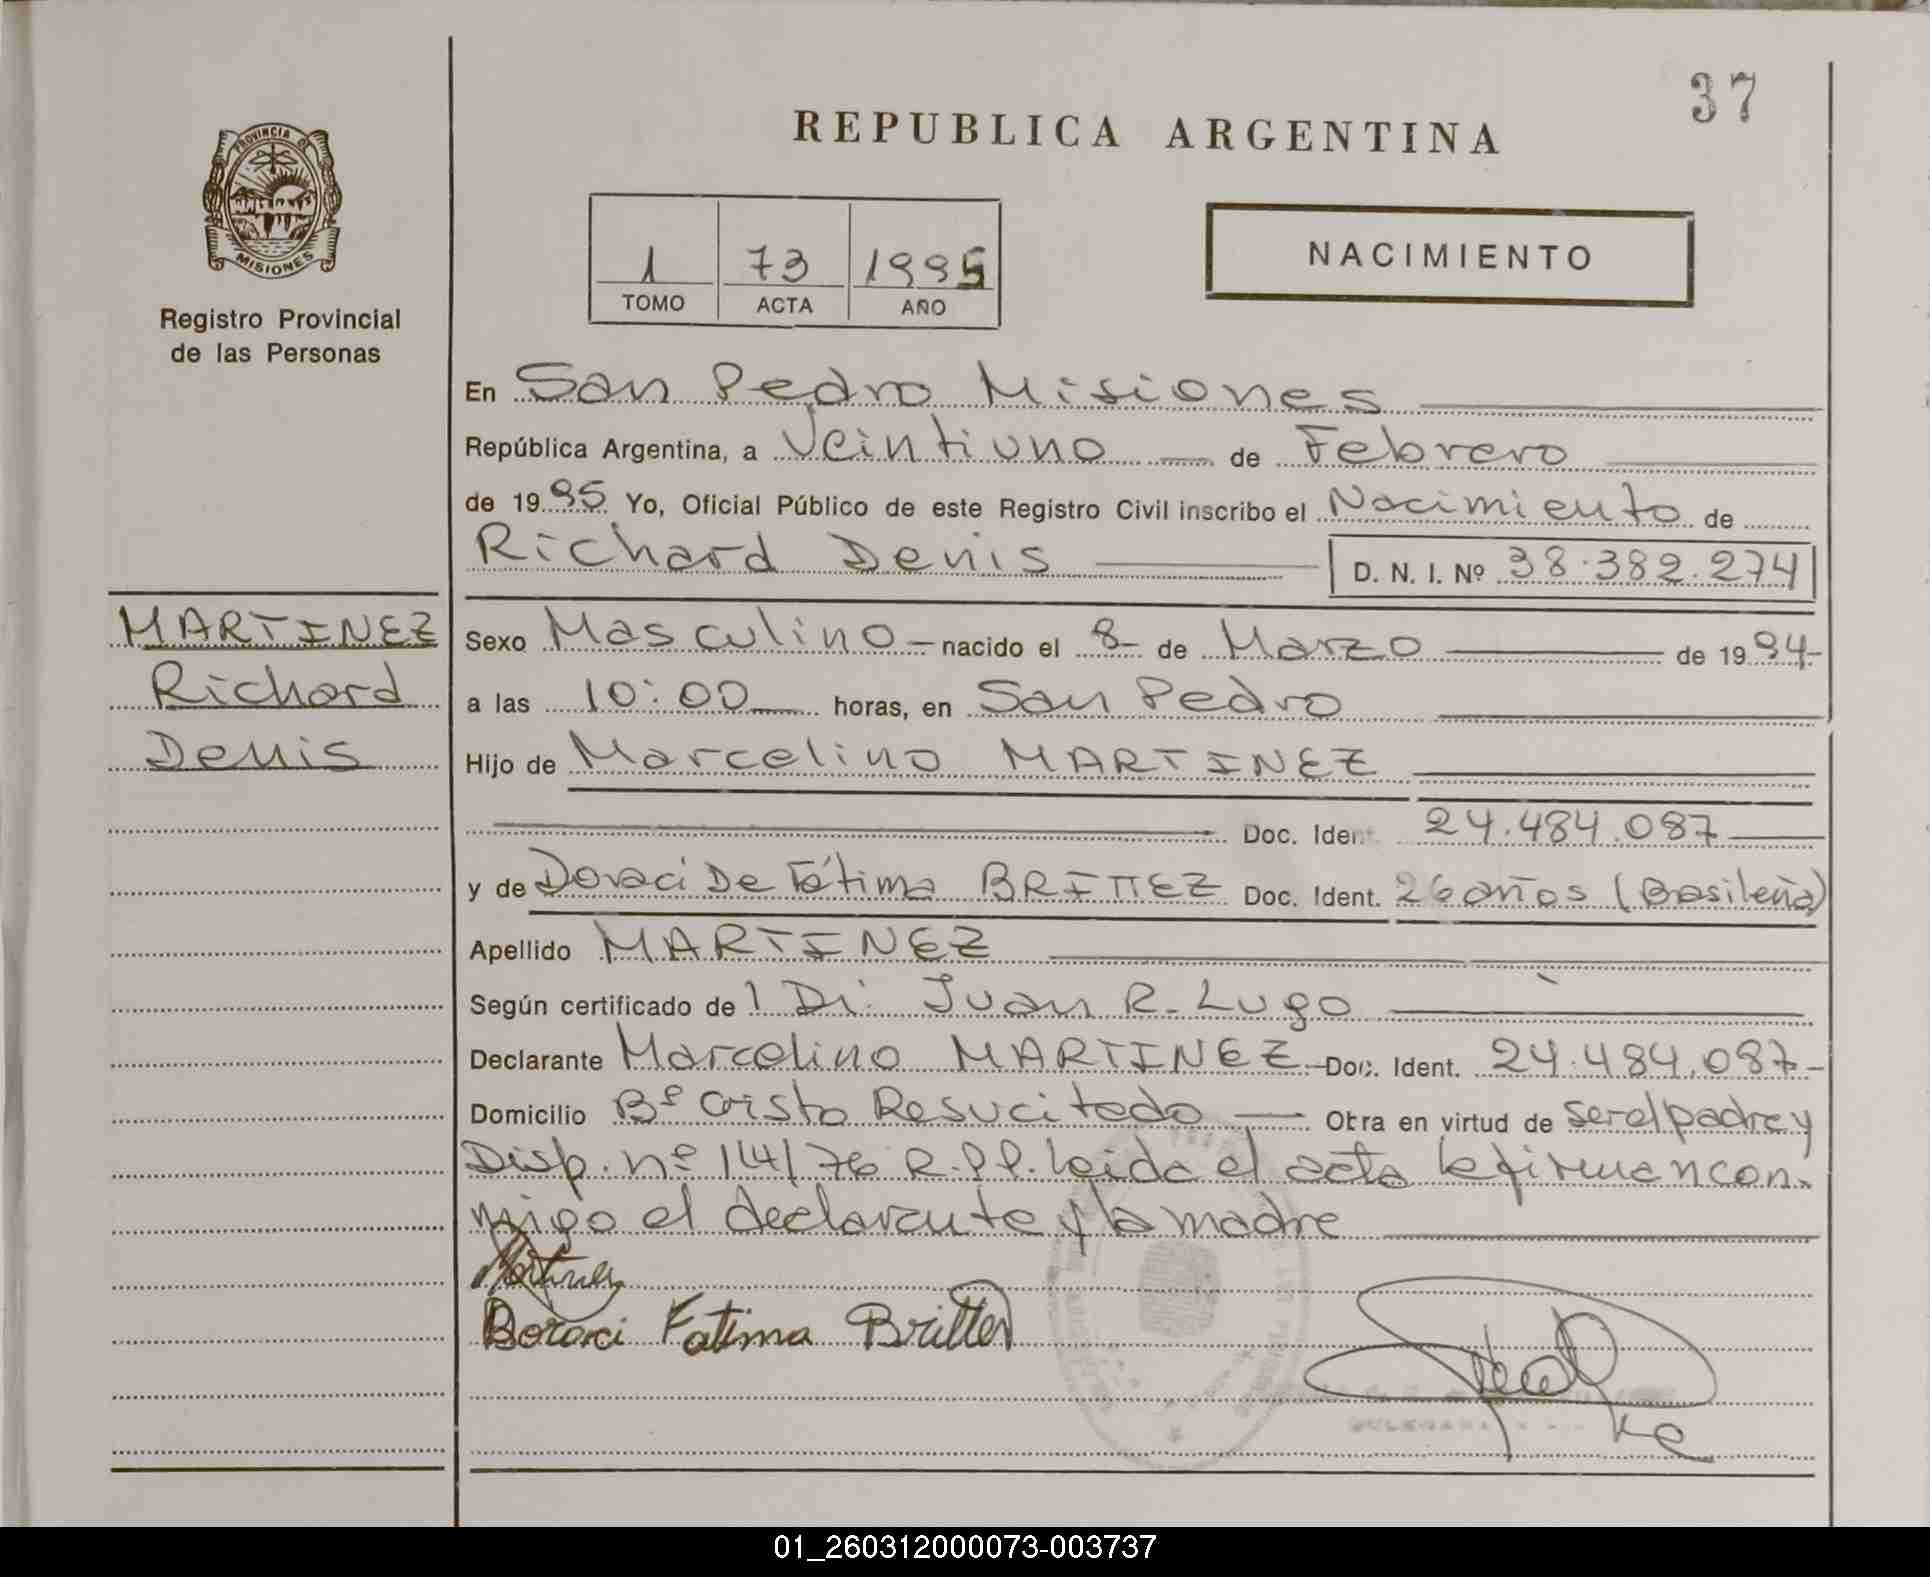 37
REPUBLICA ARGENTINA
PROVINCIA DE
MISIONES
Registro Provincial
de las Personas
1 73 1995
TOMO ACTA AÑO
NACIMIENTO
En San Pedro Misiones
República Argentina, a Veintiuno de Febrero
de 1995 Yo, Oficial Público de este Registro Civil inscribo el Nacimiento de
Richard Denis D. N. I. Nº 38.382.274
MARTINEZ
Richard
Denis
Sexo Masculino - nacido el 8- de Marzo de 1994-
a las 10:00 horas, en San Pedro
Hijo de Marcelino MARTINEZ
Doc. Ident. 24.484.087
y de Doraci De Fátima BRITTEZ Doc. Ident. 26 años (Brasileña)
Apellido MARTINEZ
Según certificado de l Dr. Juan R. Lugo
Declarante Marcelino MARTINEZ - Doc. Ident. 24.484.087-
Domicilio Bº Cristo Resucitado Otra en virtud de ser el padre y
Disp. nº 14/76 R.P.P. Leida el acta la firman con-
migo el declarante y la madre
Martinez
Doraci Fatima Brittez
01_260312000073-003737